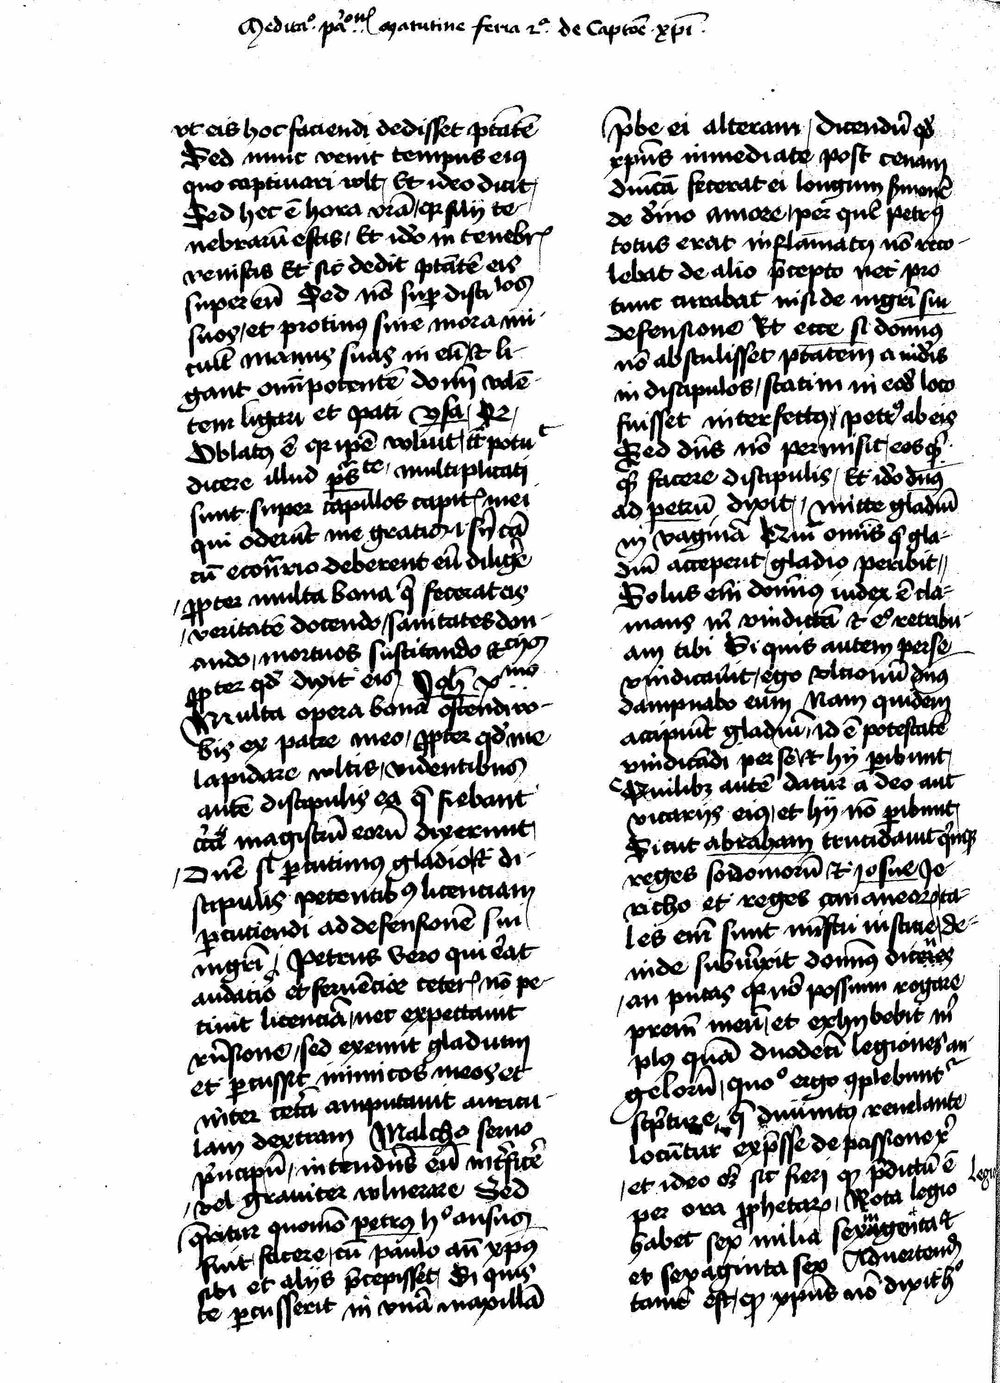 Meditaº. paºnıs matutine feria 2ª. de Captōe xp̄i.
vt eis hoc faciendi dedisset ptātē
Sed nunc venit tempus eiꝰ
quo captiuari vult, Et ideo dicit,
Sed hec ē hora vrā, qr filij te-
nebrarū estis, Et idō in tenebris
venistis Et sic dedit ptātē eis
super eū Sed nō sup discilos
suos, et protinꝰ sine mora in-
manus suas in eū, et li-
gant omipotentē dom̄ volē-
tem ligari et pati ysa.
Oblatꝰ ē qr ip̄e voluit, potuit
dicere illud ps̄te, multiplicati
sunt super capillos capitis mei
qui oderūt me gratis, i. sn̄ cā
cū econtrario deberent eū diligē
ꝓpter multa bona q̄ fecerat eis
veritatē docendo, sanitates don-
ando, mortuos suscitando
ꝓpter qd dixit eis Joh xmo
Multa opera bona ostendi vo-
bis ex patre meo, ꝓpter qd me
lapidare vultis, videntibus
autē discipulis ea q̄ fiebant
c̄ca magistrū eorū dixerunt,
Dn̄e si p̄cutimus gladio, Et di-
scipulis petentibꝰ licenciam
p̄cutiendi ad defensionē sui
mgr̄i, Petrus vero qui erat
audacior et feruēcior ceteris nō pe-
tiuit licenciā, nec expectauit
rn̄sionē, sed exemit gladium
et p̄cussit inimicos meos et
inter cetera amputauit auricu-
lam dextram Malcho seruo
p̄ncipū, intendēs eū int̄ficē
vel grauiter vulnerare Sed
q̄ritur quomō petrꝰ hº ausus
fuit facere, cū paulo an̄ xp̄us
sibi et alijs p̄cepisset, Si quis
te p̄cusserit in vnā maxillā
p̄be ei alteram, Dicendū qd
xp̄us inmediate post cenam
dn̄icā fecerat ei longum sermonē
de diuino amore, per quē petrꝰ
totus erat inflāmatꝰ nō reco-
lebat de alio p̄cepto nec pro
tunc curabat nisi de mgr̄i sui
defensione Et ecce si domiꝰ
nō abstulisset ptātem a iudeis
in discipulos, statim in eod loco
fuisset interfectus petrꝰ ab eis
Sed dn̄s nō permisit, eos
facere discipulis, Et idō dn̄us
ad petrū dixit, mitte gladiū
in vaginā omis q̄ gla-
diū acceperit, gladio peribit,
Solus em̄ domiꝰ iudex ē cla-
mans m̄ vindictā et eº retribu-
am tibi Si quis autem per se
vindicauit, ego vltionū dn̄us
dampnabo eum Nam quidem
accipiūt gladiū, id ē potestatē
vindicādi per se, et hij peribunt
Quilibꝫ autē datur a deo aut
vicarijs eiꝰ, et hij nō peribunt,
Sicut abraham trucidauit quinqꝫ
reges sodomorū, Et Josue Je-
richo et reges cananeorum, ta-
les em̄ sunt mīstri iusticie, de-
inde subiūxit domiꝰ dicens
an putas qr nō possum rogare
prem̄ meū, et exhybebit m̄
plꝰ quā duodecī legiones an-
gelorū, quoº ergo īplebunt
scpture, q̄ diuinitꝰ reuelante
locūtur exp̄sse de passione xi
et ideo oꝫ sic fieri qr p̄dictū ē
per ora ꝓphetarum, Nota legio
habet sex milia sexingenta et
et sexaginta sex Aduertend
tamē est, qr xp̄us nō dixit hº
Legio